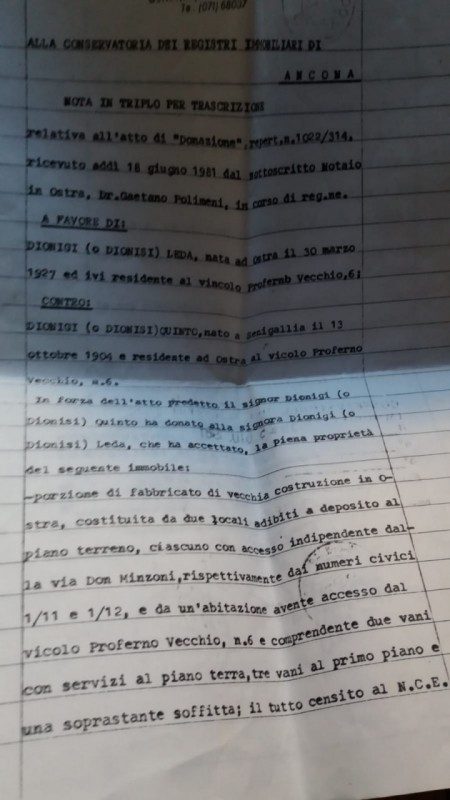 Te. (071) 68007
ALLA CONSERVATORIA DEI REGISTRI IMMOBILIARI DI
ANCONA
NOTA IN TRIPLO PER TRASCRIZIONE
relativa all'atto di "Donazione", repert.n.1022/314,
ricevuto addì 18 giugno 1981 dal sottoscritto Notaio
in Ostra, Dr.Gaetano Polimeni, in corso di reg.ne.
A FAVORE DI:
DIONIGI (o DIONISI) LEDA, nata ad Ostra il 30 marzo
1927 ed ivi residente al vincolo Profernb Vecchio,6;
CONTRO:
DIONIGI (o DIONISI)QUINTO,nato a Senigallia il 13
ottobre 1904 e residente ad Ostra al vicolo Proferno
Vecchio, n.6.
In forza dell'atto predetto il signor Dionigi (o
Dionisi) Quinto ha donato alla signora Dionigi (o
Dionisi) Leda, che ha accettato, la piena proprietà
del seguente immobile:
-porzione di fabbricato di vecchia costruzione in O-
stra, costituita da due locali adibiti a deposito al
piano terreno, ciascuno con accesso indipendente dal-
la via Don Minzoni,rispettivamente dai numeri civici
1/11 e 1/12, e da un'abitazione avente accesso dal
vicolo Proferno Vecchio, n.6 e comprendente due vani
con servizi al piano terra,tre vani al primo piano e
una soprastante soffitta; il tutto censito al N.C.E.